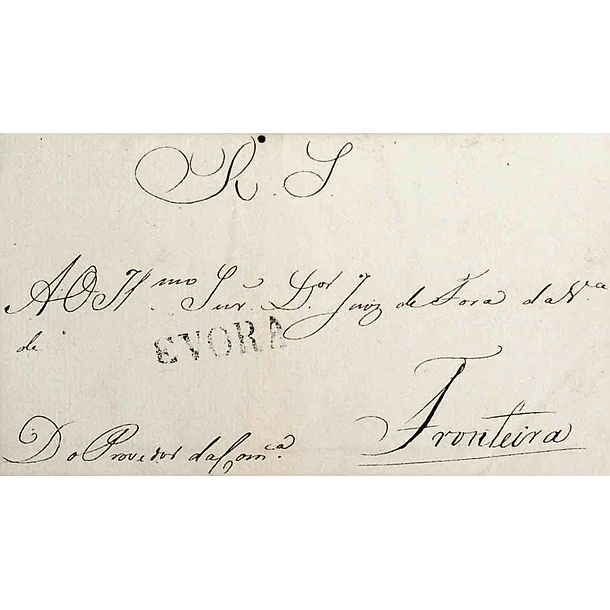 R. S.
AO Il.mo Snr. D.or Juiz de Fora da V.a
de
EVORA
Fronteira
Do Provedor da Com.ca